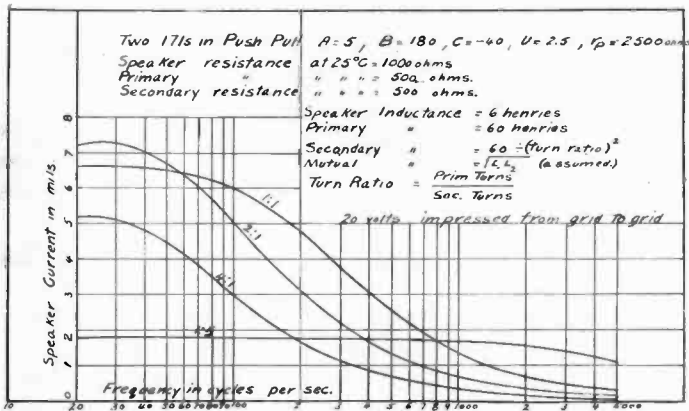 Two 171s in Push Pull A = 5, B = 180, C = -40, U = 2.5, rp = 2500 ohms
Speaker resistance at 25°C = 1000 ohms
Primary " " " " = 500 ohms.
Secondary resistance " " " = 500 ohms.
Speaker Inductance = 6 henries
Primary " = 60 henries
Secondary " = 60 ÷ (turn ratio)²
Mutual " = √L₁L₂ (assumed.)
Turn Ratio = Prim Turns
Sec. Turns
20 volts impressed from grid to grid
Speaker Current in mils.
8
7
6
5
4
3
2
1
0
1:1
2:1
4:1
Frequency in cycles per sec.
10 20 30 40 50 60 70 80 100 2 3 4 5 6 7 8 9 1000 2 3 4